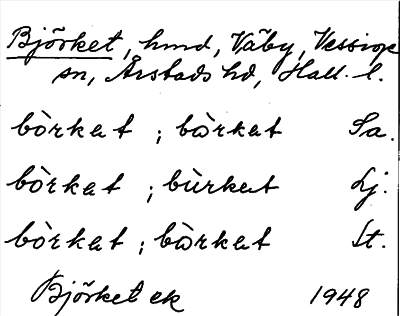 Björket, hmd, Väby, Vessige
sn, Årstads hd, Hall. l.
bòrkat ; bàrkat Sa.
bòrkat ; bùrkat Lj.
bòrkat ; bàrkat St.
Björket ek 1948